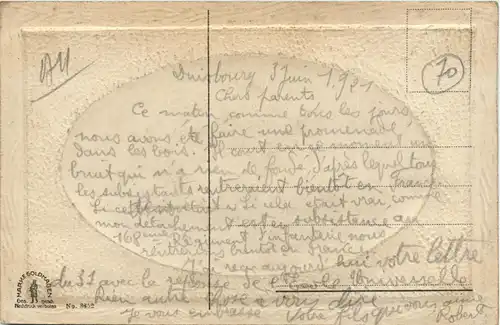 All
70
Duisbourg 3 Juin 1921
Chers parents
Ce matin comme tous les jours
nous avons été faire une promenade
dans les bois. Il court en ce moment un
bruit qui n'a rien de fondé, d'après lequel tous
les subsistants rentreraient bientôt en France
Si cela était vrai, comme
mon détachement est en subsistance au
168eme Régiment d'infanterie nous
rentrerions bientôt en France
J'ai reçu aujourd'hui votre lettre
du 31 avec la réponse de l'école Universelle
rien autre chose à vous dire
Je vous embrasse Votre fils que vous aime
Robert
MARKE GOLDHASEN
Des. gesch.
No. 8812